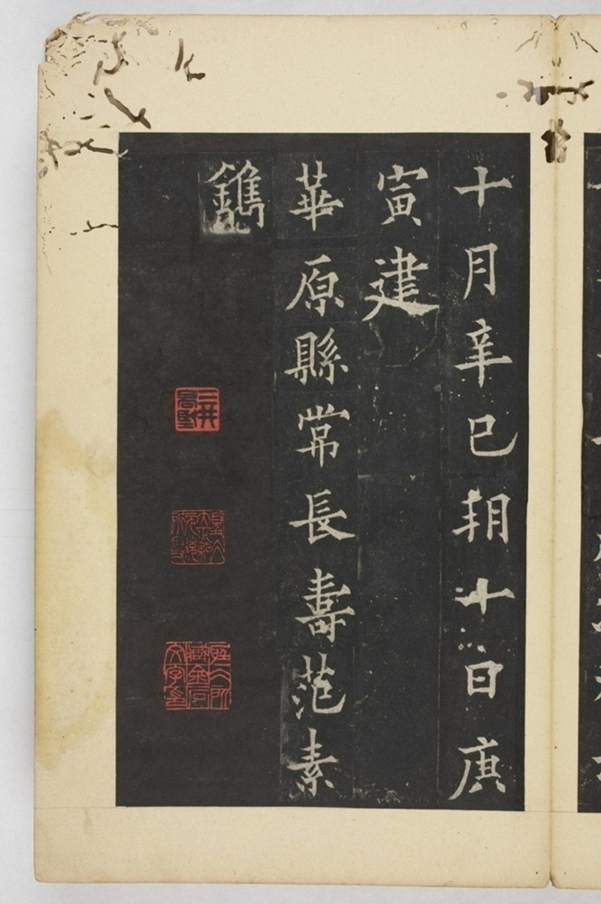 十月辛巳朔十日庚
寅建
華原縣常長壽范素
鐫
三井高堅